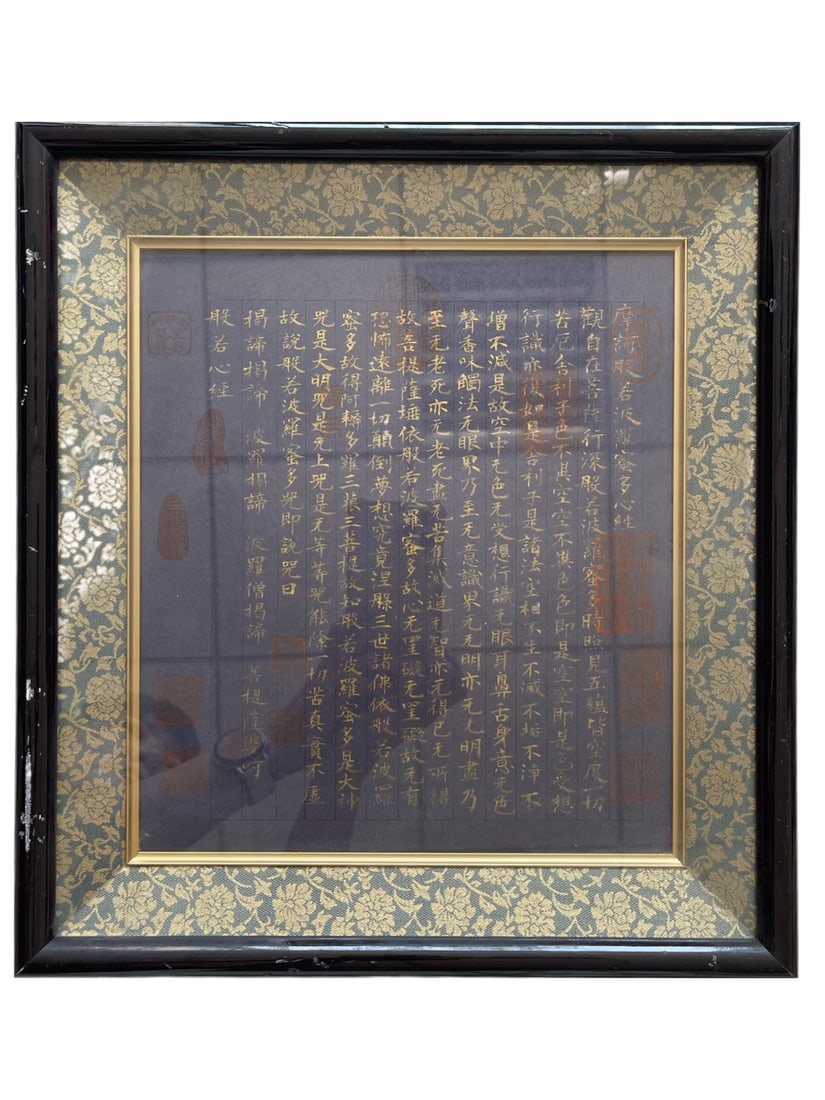 摩訶般若波羅蜜多心經
觀自在菩薩行深般若波羅蜜多時照見五緼皆空度一切
苦厄舍利子色不異空空不異色色即是空空即是色受想
行識亦復如是舍利子是諸法空相不生不滅不垢不淨不
增不減是故空中无色无受想行識无眼耳鼻舌身意无色
聲香味觸法无眼界乃至无意識界无无明亦无无明盡乃
至无老死亦无老死盡无苦集滅道无智亦无得已无所得
故菩提薩埵依般若波羅蜜多故心无罣礙无罣礙故无有
恐怖遠離一切顛倒夢想究竟涅槃三世諸佛依般若波羅
蜜多故得阿耨多羅三藐三菩提故知般若波羅蜜多是大神
咒是大明咒是无上咒是无等等咒能除一切苦真實不虛
故說般若波羅蜜多咒即說咒曰
揭諦揭諦 波羅揭諦 波羅僧揭諦 菩提薩婆訶
般若心經